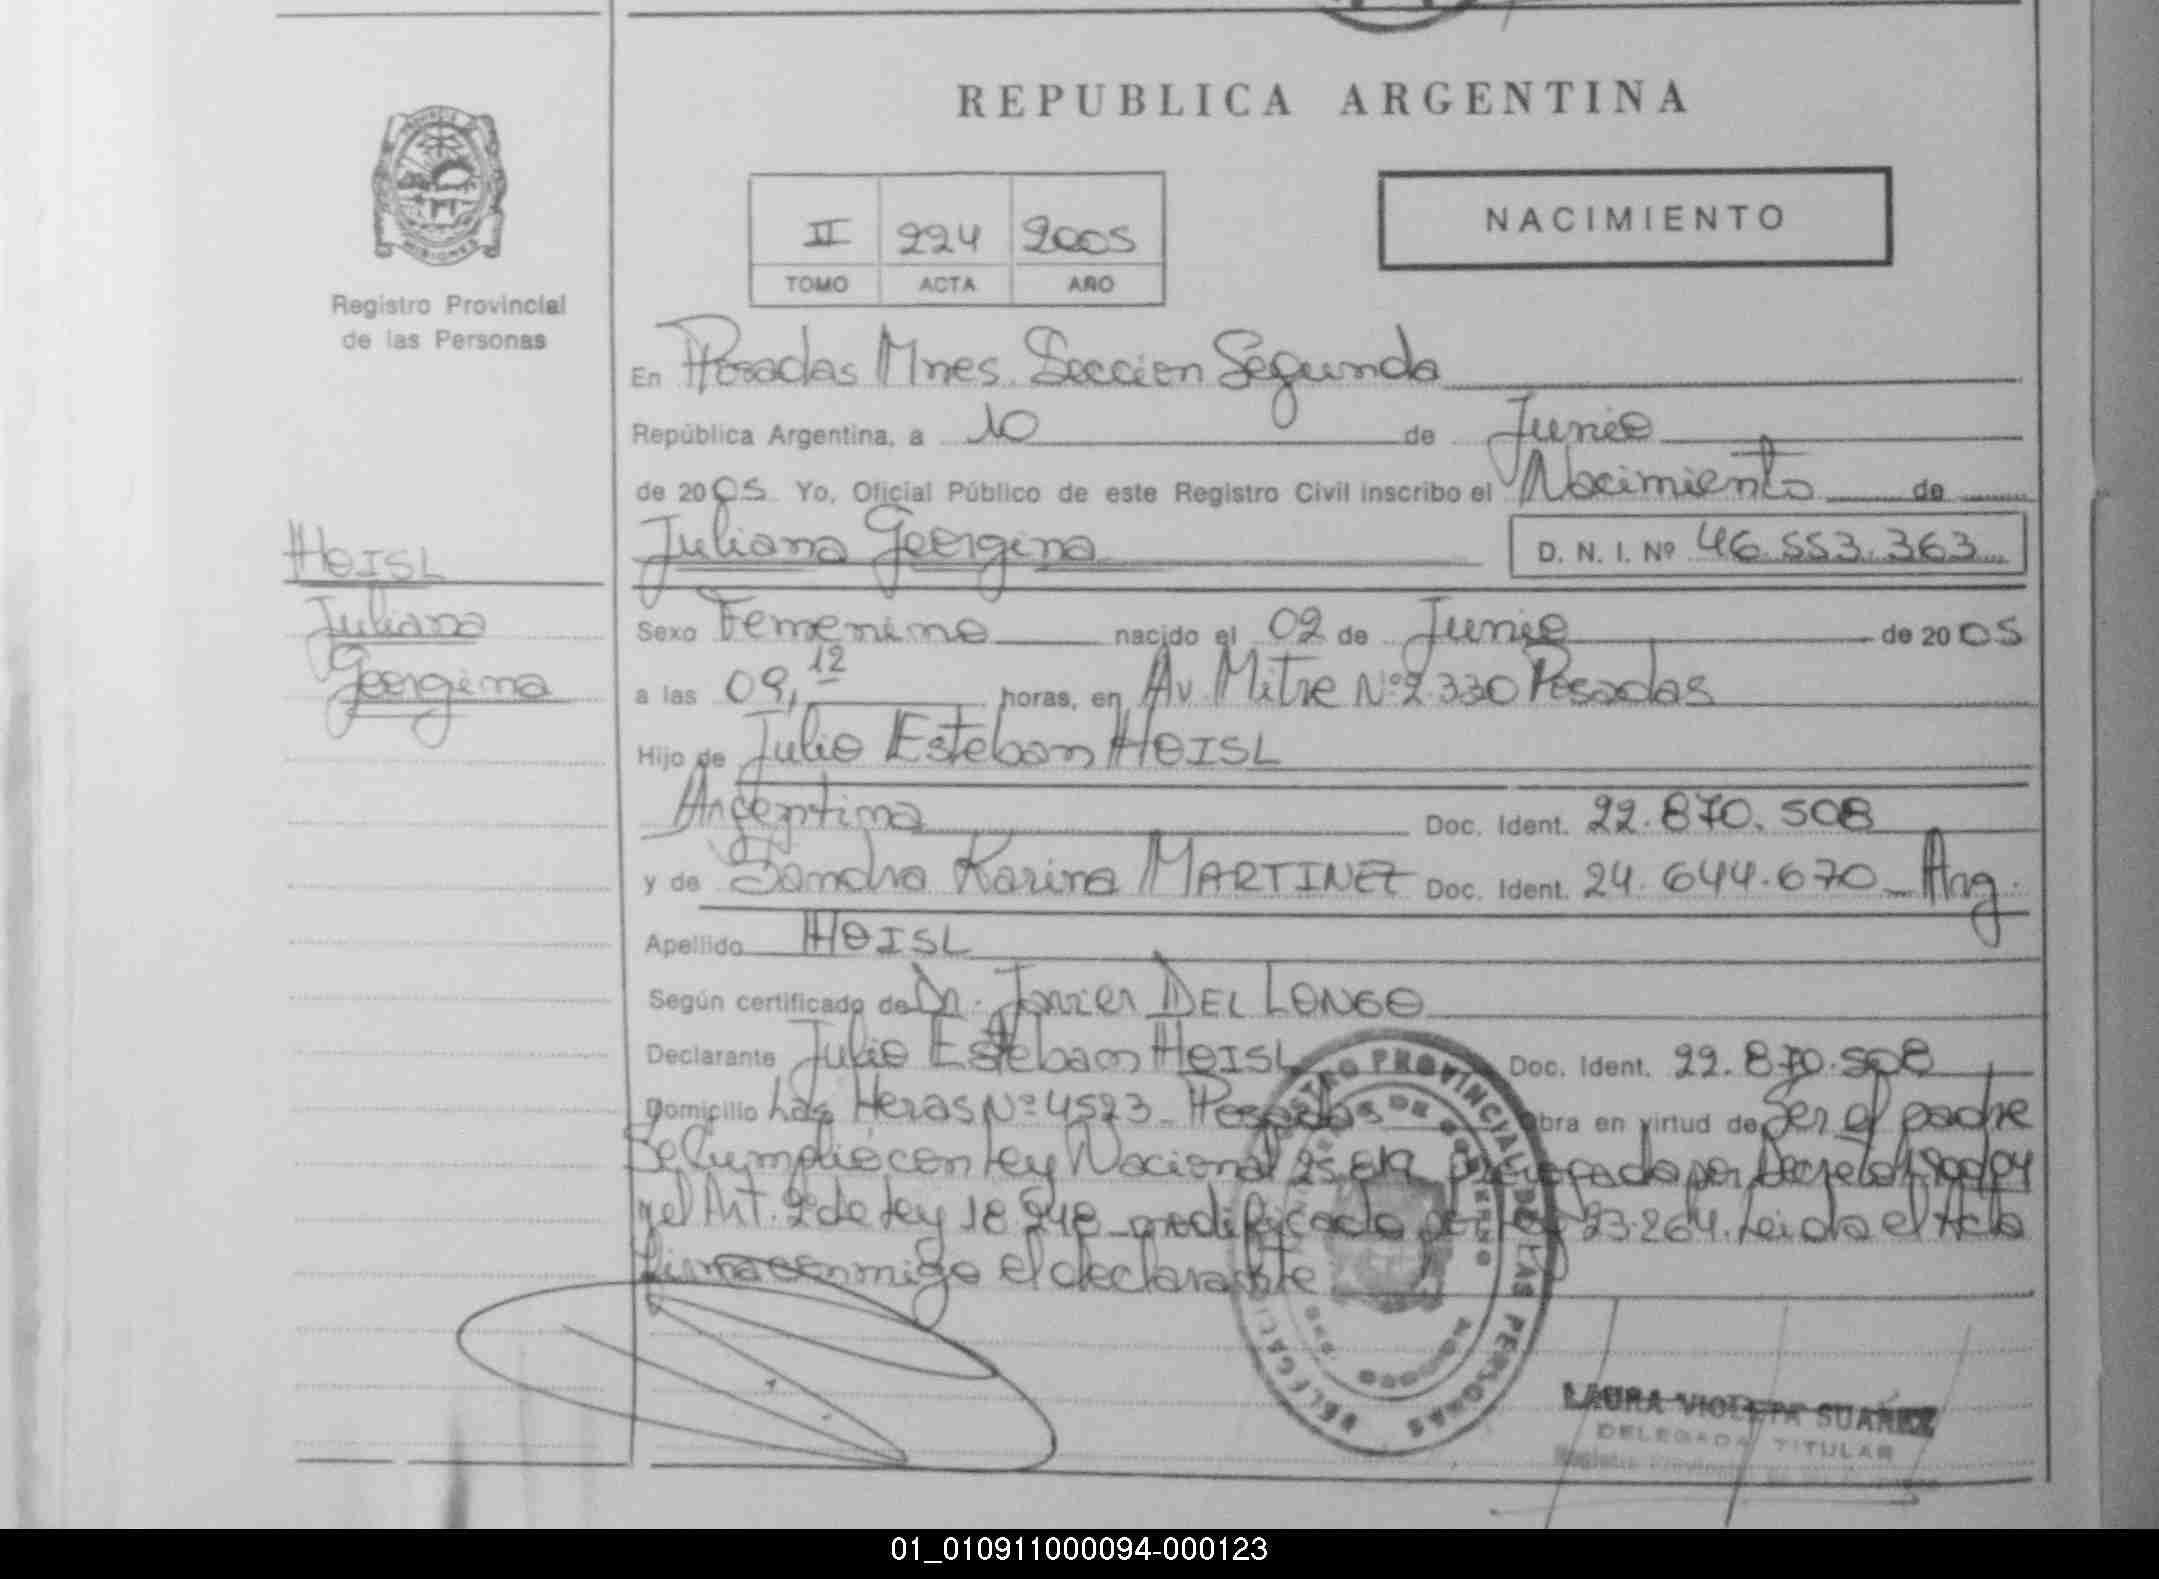 REPUBLICA ARGENTINA
NACIMIENTO
II 224 2005
TOMO ACTA AÑO
PROVINCIA DE MISIONES
Registro Provincial
de las Personas
En Posadas Mnes. Seccion Segunda
República Argentina, a 10 de Junio
de 2005 Yo, Oficial Público de este Registro Civil inscribo el Nacimiento de
Juliana Georgina D. N. I. Nº 46.553.363
HOISL
Juliana
Georgina
Sexo Femenino nacido el 02 de Junio de 2005
a las 09,12 horas, en Av. Mitre Nº 2.330 Posadas
Hijo de Julio Esteban HOISL
Argentina Doc. Ident. 22.870.508
y de Sandra Karina MARTINEZ Doc. Ident. 24.644.670 Arg.
Apellido HOISL
Según certificado de Dr. Javier DEL LONGO
Declarante Julio Esteban HOISL Doc. Ident. 22.870.508
Domicilio Las Heras Nº 4523 Posadas Obra en virtud de Ser el padre
Se Cumplió con Ley Nacional 25.819 por Decreto
y el Art. 2º de Ley 18.248 modificado por Ley 23.264. Leida el Acta
firma conmigo el declarante
REGISTRO PROVINCIAL DE LAS PERSONAS
LAURA VIOLETA SUAREZ
DELEGADA TITULAR
Registro Provincial de las Personas
01_010911000094-000123